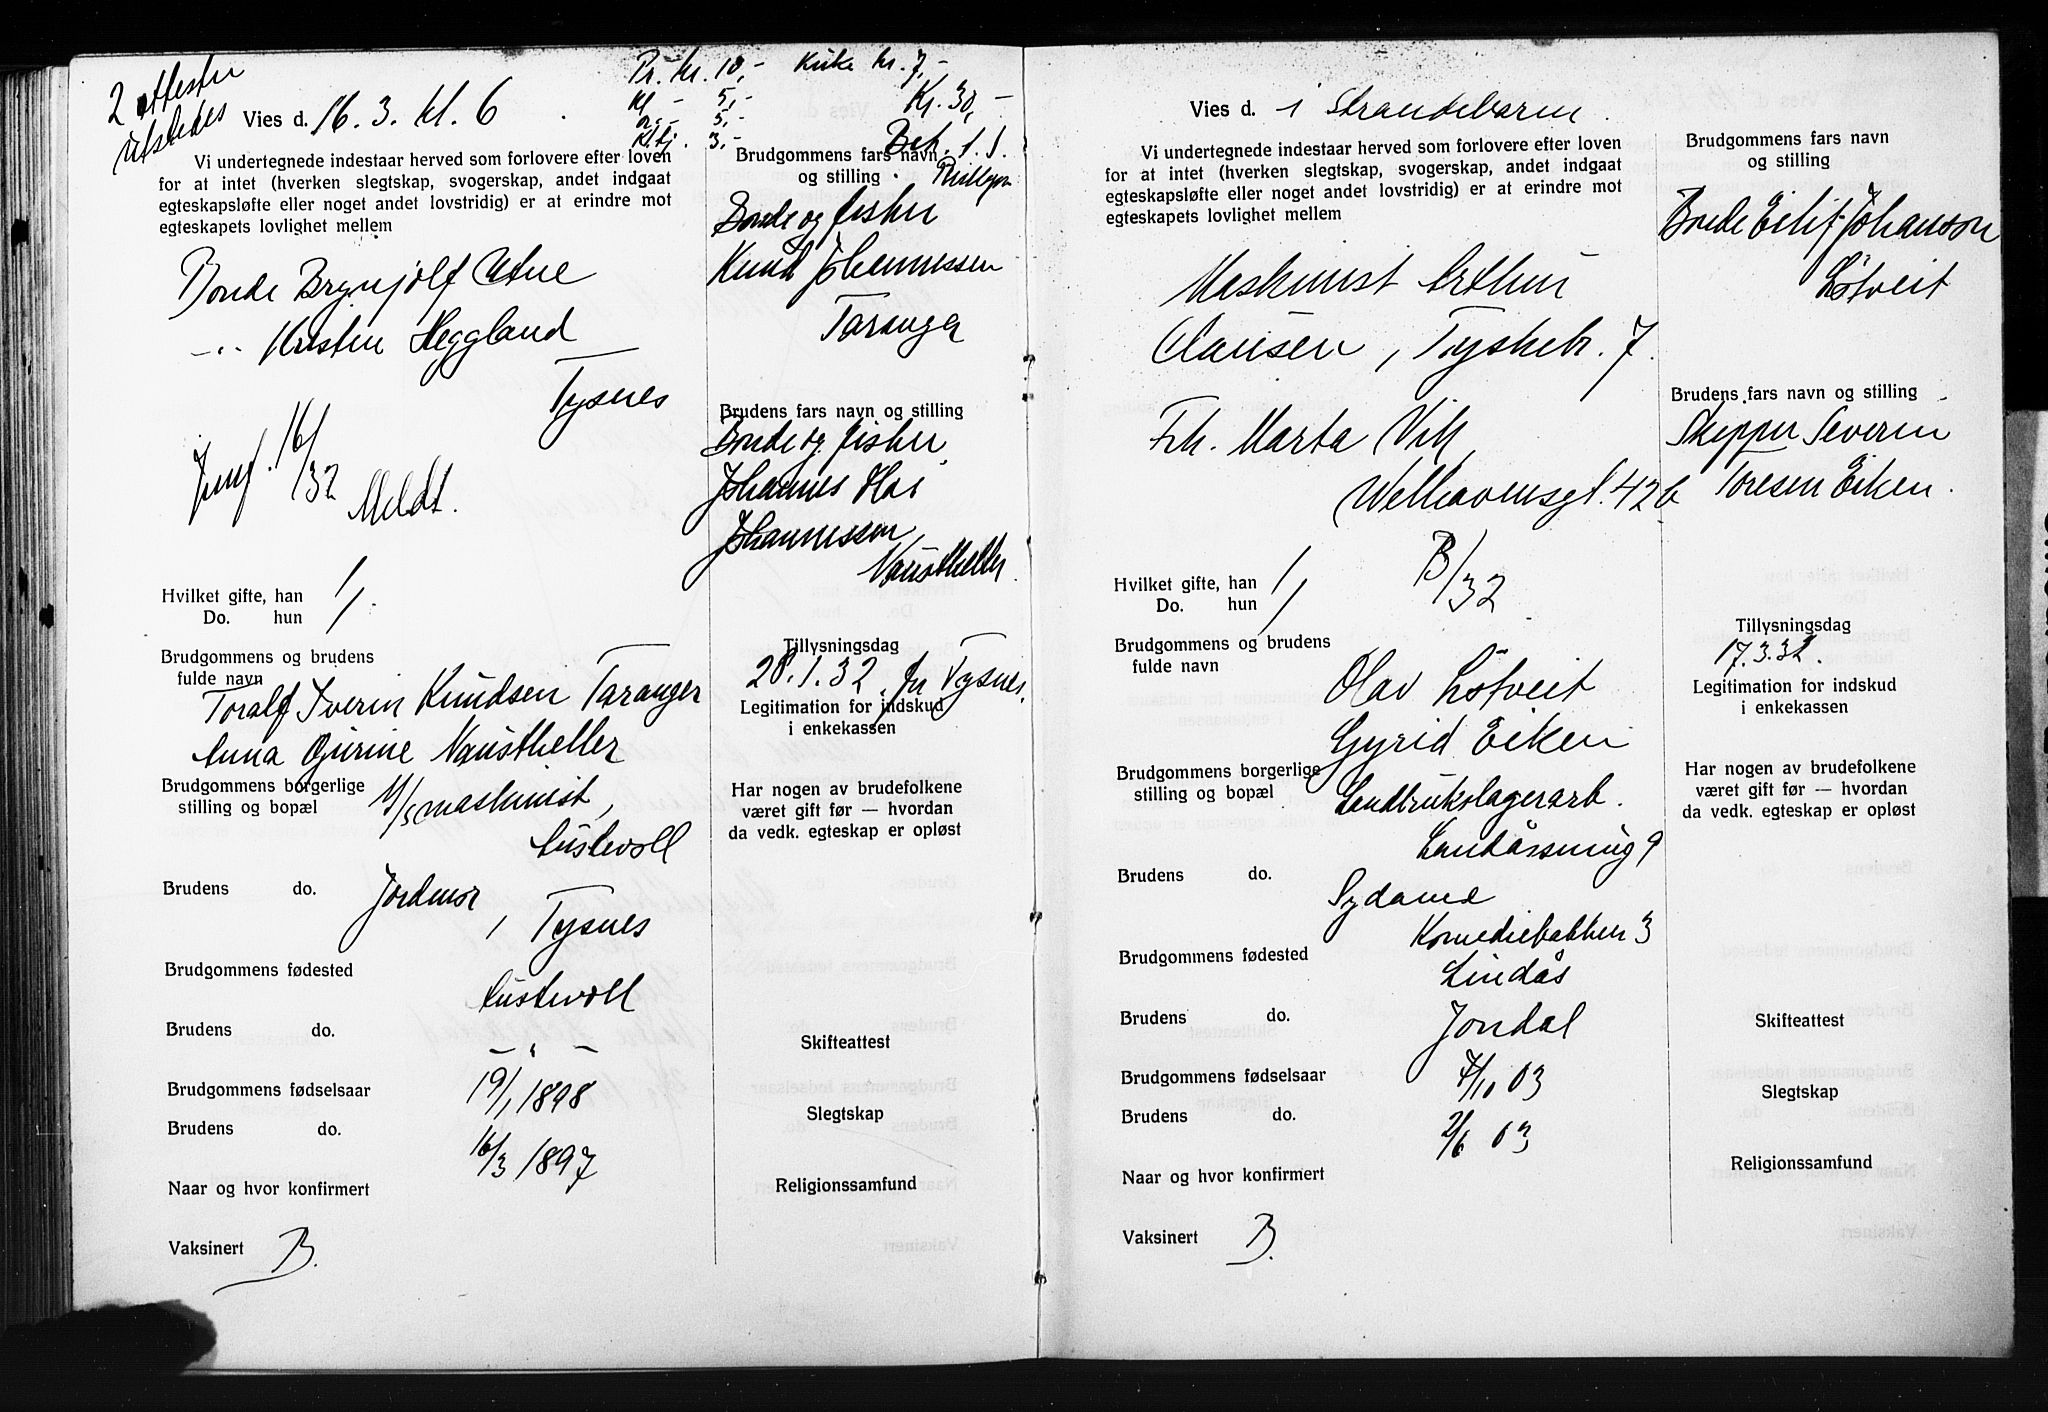 2 attester
utstedes
Vies d. 16.3. kl. 6
Pr. kr. 10,- Kirke kr. 7,-
Kl - 5,- Kr. 30,-
org - 5,-
Kl.tj. 3,- Bet. 1.S.
Vi undertegnede indestaar herved som forlovere efter loven
for at intet (hverken slegtskap, svogerskap, andet indgaat
egteskapsløfte eller noget andet lovstridig) er at erindre mot
egteskapets lovlighet mellem
Bonde Brynjolf Uthue
-"- Kristen Heggland
Tysnes
Jmf. 16/1 32 Meldt.
Brudgommens fars navn
og stilling
Bonde og fisker
Knud Johannessen
Taranger
Brudens fars navn og stilling
Bonde og fisker
Johannes Kai
Johannessen
Naustheller
Hvilket gifte, han 1
Do. hun 1.
Tillysningsdag
28.1.32. for Tysnes.
Legitimation for indskud
i enkekassen
Brudgommens og brudens
fulde navn
Toralf Iverin Knudsen Taranger
Anna Gurine Naustheller
Brudgommens borgerlige
stilling og bopæl M/S maskinist,
Austevoll
Har nogen av brudefolkene
været gift før — hvordan
da vedk. egteskap er opløst
Brudens do. Jordmor
, Tysnes
Brudgommens fødested
Austevoll
Brudens do.
- " -
Skifteattest
Brudgommens fødselsaar 19/1 1898
Slegtskap
Brudens do.
16/3 1897
Naar og hvor konfirmert
Religionssamfund
Vaksinert B.
Vies d. i Strandebarm.
Vi undertegnede indestaar herved som forlovere efter loven
for at intet (hverken slegtskap, svogerskap, andet indgaat
egteskapsløfte eller noget andet lovstridig) er at erindre mot
egteskapets lovlighet mellem
Maskinist Arthur
Clausen, Tyskebr. 7.
Frk. Marta Vik,
Welhavensgt. 42b
B/32
Brudgommens fars navn
og stilling
Bonde Eilif Johanson
Løtveit
Brudens fars navn og stilling
Skipper Severin
Toresen Eiken.
Hvilket gifte, han 1
Do. hun 1
Tillysningsdag
17.3.32.
Legitimation for indskud
i enkekassen
Brudgommens og brudens
fulde navn
Olav Løtveit
Gyrid Eiken
Brudgommens borgerlige
stilling og bopæl Landbrukslagerarb.
Landåssming 9
Har nogen av brudefolkene
været gift før — hvordan
da vedk. egteskap er opløst
Brudens do.
Sydame
Komediebakken 3
Brudgommens fødested
Lindås
Brudens do. Jondal
Skifteattest
Brudgommens fødselsaar 7/10 03
Slegtskap
Brudens do.
2/6 03
Naar og hvor konfirmert
Religionssamfund
Vaksinert B.